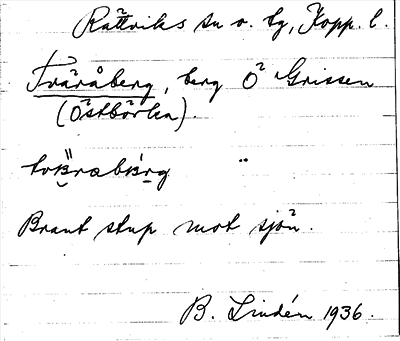 Rättviks sn o. tg, Kopp. l.
Tväråberg, berg O Grissen
(Östbörka).
Brant stup mot sjön.
B. Lindén 1936.